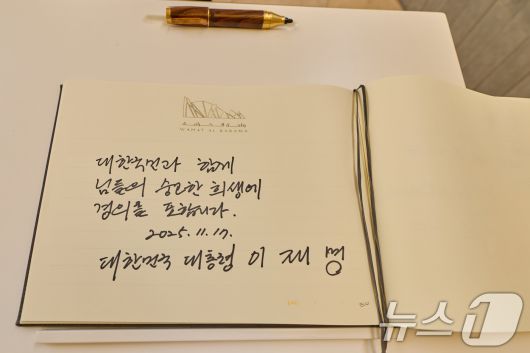 واحة الكرامة
WAHAT AL KARAMA
대한국민과 함께
님들의 숭고한 희생에
경의를 표합니다.
2025. 11. 17.
대한민국 대통령 이 재 명
뉴스1